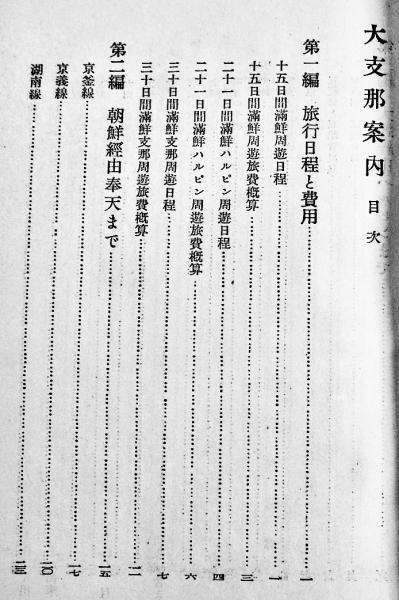 大支那案内 目次
第一編 旅行日程と費用 一
十五日間滿鮮周遊日程 一
十五日間滿鮮周遊旅費概算 三
二十一日間滿鮮ハルビン周遊日程 四
二十一日間滿鮮ハルビン周遊旅費概算 六
三十日間滿鮮支那周遊日程 七
三十日間滿鮮支那周遊旅費概算 一一
第二編 朝鮮經由奉天まで 一五
京釜線 一七
京義線 二〇
湖南線 二三